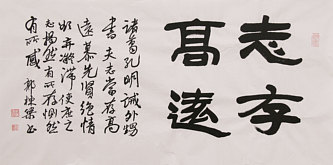 志存
髙遠
諸葛孔明誡外甥
書夫志當存高
遠慕先賢絕情
欲棄凝滯使庶之
志揭然有所存惻然
有所感 郭